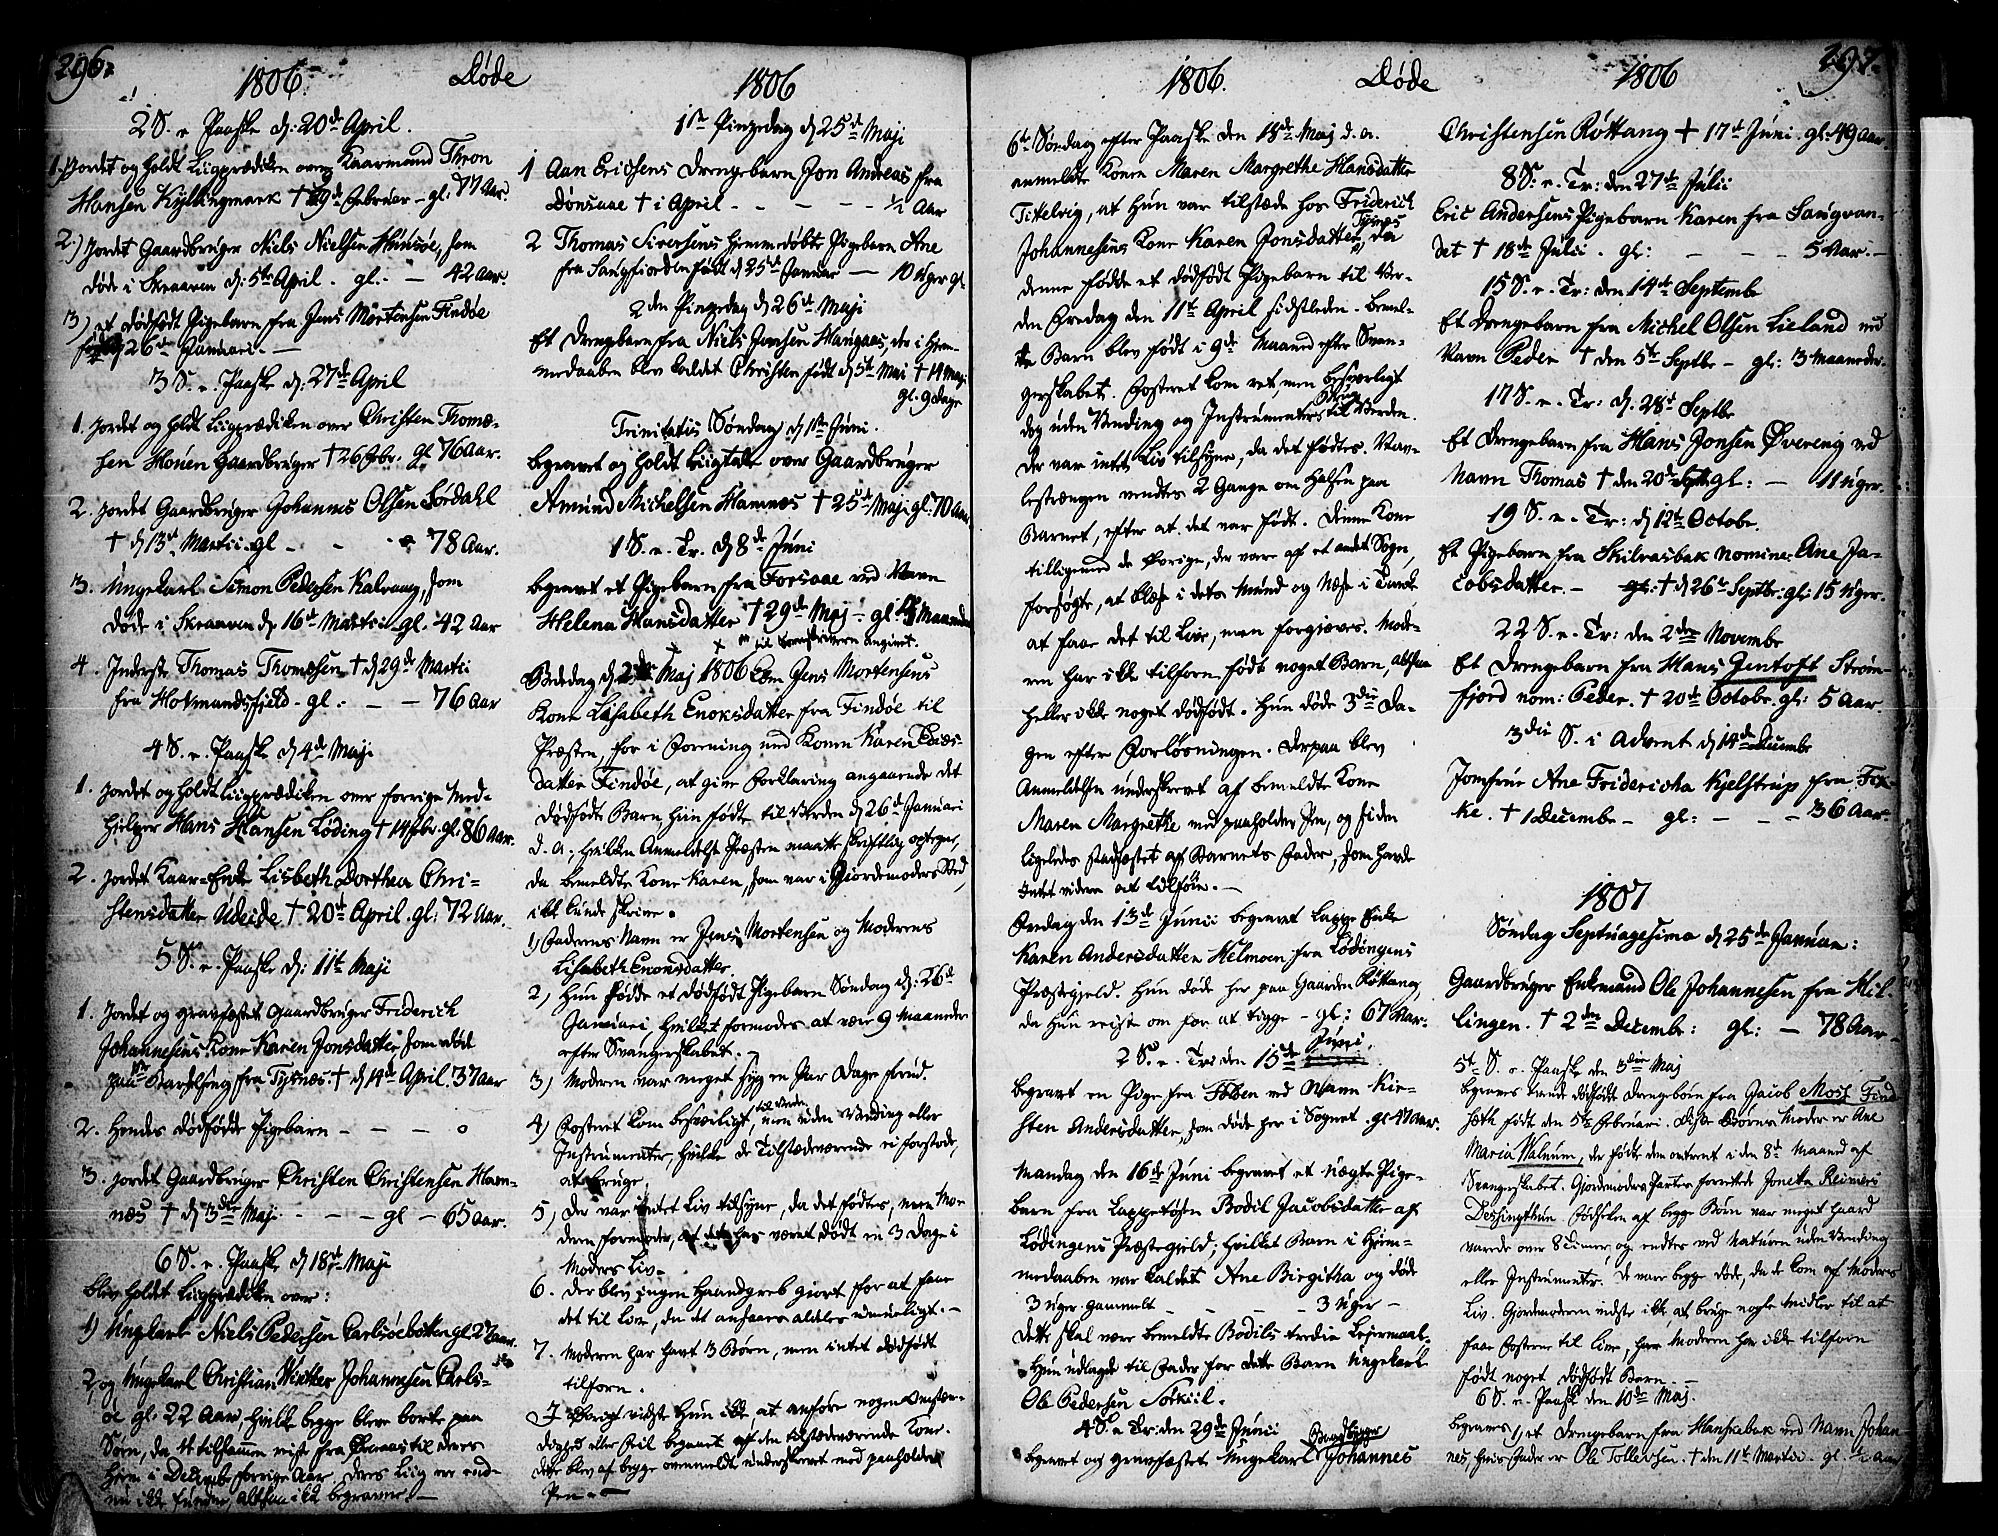 296.
1806. Døde 1806
2 S. e. Paaske d: 20de April.
1. Jordet og holdt Liigprædiken over Kaarmand Thron
Hansen Kyllingmark † 19de Februar - gl. 77 Aar.
2.) Jordet Gaardbruger Niels Nielsen Hunsøe, som
døde i Skraaven d: 5te April. gl: - 42 Aar.
3) et dødfødt Pigebarn fra Jens Mortensen Findøe
født d 26de Januari. -
3 S. e. Paaske d: 27de April
1. Jordet og holdt Liigprædiken over Christen Thomæ-
sen Monen Gaardbruger † 26 Febr. gl 76 Aar.
2. Jordet Gaardbruger Johannes Olsen Sørdahl
† d 13de Martii. gl - - 78 Aar.
3. Ungekarl Simon Pedersen Kalvaag, som
døde i Skraaven d 16de Martii gl. 42 Aar
4. Inderst Thomas Thomesen † d 29de Martii
fra Hotmandsfield - gl: - - 76 Aar
4 S. e. Paaske d 4de Maji
1. Jordet og holdt Liigprædiken over forrige Med-
hjelper Hans Hansen Løding † 14 febr. gl: 86 Aar.
2. Jordet Kaar-Enke Lisbeth Dorthea Chri-
stensdatter Udeide † 20de April. gl: 72 Aar.
5 S. e. Paaske d: 11te Maji
1. Jordet og gravfæstet Gaardbruger Friderich
Johannesens Kone Karen Jonsdatter som døde
paa Barselseng fra Tysnes. † d 14de April. 37 Aar
2. Hendes dødfødde Pigebarn - - - 0
3. Jordet Gaardbruger Christen Christensen Ham-
næs † d 3die Maji - - - gl - 65 Aar.
6 S. e. Paaske d 18de Maji
blev holdet Liigprædiken over:
1) Ungkarl Niels Pedersen Carlsøebotten gl 27 Aar.
2, og Ungekarl Christian Winther Johannesen Carls-
øe gl: 22 Aar, hvilke begge bleve borte paa
Søen, da 4 tilsammen reiste fra til deres
Hiem i Decembr forrige Aar. Deres Liig ere end-
nu ikke fundne, altsaa ikke begravne. -
1ste Pinzedag d 25de Maji
1 Aan Erichsens Drengebarn Jon Andreas fra
Dønsaae † i April - - - - ½ Aar
2 Thomas Sivertsens hiemmedøbte Pigebarn Ane
fra Langfjorden født d 25de Januar - 10 Uger gl.
2den Pinzedag d 26de Maji
Et Drengebarn fra Niels Jonsen Haugnæs, der i Hiem-
medaaben blev kaldet Christen født d 5te Mai † 14 Maji
gl. 9 dage
Trinitatis Søndag d 1ste Juni.
begravet og holdt Liigtale over Gaardbruger
Amund Michelsen Hamnæs † 25de Maji gl. 70 Aar
1 S. e. Tr. d 8de Juni
begravet et Pigebarn fra Forsaae ved Navn
Helena Hansdatter † 29de Maj - gl. Maaneder
Bededag d 2de Maj 1806 kom Jens Mortensens
Kone Lisabeth Enoksdatter fra Findøe til
Præsten, for i Forening med Konen Karen
datter Findøe, at give Forklaring angaaende det
dødfødte Barn hun fødte til Verden d 26de Januari
d. A; hvilken Anmeldelse Præsten maatte skriftlig optegne,
da bemeldte Kone Karen, som var i Giordemoders Sted,
ikke kunde skrive.
1) Faderens Navn er Jens Mortensen og Moderens
Lisabeth Enonsdatter.
2) Hun fødde et dødfødt Pigebarn Søndag d: 26de
Januari, hvilket formodes at være 9 Maaneder
efter Svangerskabet.
3) Moderen var meget syg en Par Dage forud.
4) Fosteret kom besværligt til Verden, men uden Vending eller
Instrumenter, hvilke de Tilstedeværende ei forstode,
at bruge.
5) Der var intet Liv tilsyne, da det fødtes, men Mo-
deren formoder, at det har været dødt en 3 Dage i
Moders Liv.
6. Der blev ingen Haandgreb giort for at faae
det til Live, da det ansaaes aldeles umueligt. -
7. Moderen har havt 3 Børn, men intet dødfødt
tilforn.
I øvrigt vidste hun ikke, at anføre nogen Omstæn-
dighed eller Feil begaaet af den tilstædeværende Kone.
Dette blev af begge ovenmeldte underskrevet med paaholden
Pen. -
297.
1806. Døde 1806
6te Søndag efter Paaske den 18de Maj d. a.
anmeldte Konen Maren Margrethe Hansdatter
Tittelvig, at hun var tilstæde hos Friderich
Johannesens Kone Karen Jonsdatter Tysnes, da
denne fødde et dødfødt Pigebarn til Ver-
den Fredag den 11te April sidstleden. Bemel-
te Barn blev født i 9de Maaned efter Svan-
gerskabet. Fosteret kom ret, men besværligt
dog uden Vending og Instrumenters Brug til Verden.
Der var intet Liv tilsyne, da det fødtes. Nav-
lestrængen vendtes 2 Gange om Halsen paa
Barnet, efter at det var født. Denne Kone
tilligemed de Øvrige, der vare af et andet Sogn,
forsøgte, at blæse i dets Mund og Næse
at faae det til Live, men forgjæves. Mode-
ren har ikke tilforn født noget Barn, altsaa
heller ikke noget dødfødt. Hun døde 3die Da-
gen efter Forløsningen. Derpaa blev
Anmeldelsen underskrevet af bemeldte Kone
Maren Margrethe med paaholden Pen, og siden
ligeledes stadfæstet af Barnets Fader, som havde
Intet videre at tilføie. -
Fredag den 13de Junii begravet Lappe Enke
Karen Andersdatter Helmoen fra Lødingens
Præstegield. Hun døde her paa Gaarden Røttang,
da hun reiste om for at tigge - gl: 67 Aar.
2 S. e. Tr: den 15de Juni.
begravet en Pige fra Foben ved Navn Kir-
sten Andersdatter, som døde her i Sognet. gl 47 Aar.
Mandag den 16de Juni begravet et uægte Pige-
barn fra Lappetøsen Bodil Jacobsdatter af
Lødingens Præstegield; hvilket Barn i Hiem-
medaaben var kaldet Ane Birgitha og døde
3 Uger gammelt - - - - 3 Uger -
dette skal være bemeldte Bodils tredie Leiermaal.
Hun udlagde til Fader for dette Barn Ungekarl
Ole Pedersen Sokiil.
4 S. e Tr: den 29de Junii
begravet og gravfæstet Ungekarl Johannes
Christensen Røttang † 17de Juni. gl: 49 Aar.
8 S. e. Tr: den 27de Julii
Eric Andersens Pigebarn Karen fra Langvan-
det † 18de Julii. gl: - - - 5 Aar. -
15 S. e. Tr: den 14de Septembr
Et Drengebarn fra Michel Olsen Lieland ved
Navn Peder † den 5te Septbr - gl: 3 Maaneder.
17 S. e. Tr: d. 28de Septbr
Et Drengebarn fra Hans Jonsen Øvereng ved
Navn Thomas † den 20de Sept. gl: - 11 Uger.
19 S. e. Tr: d 12te Octobr.
Et Pigebarn fra Skilvasbak nomine: Ane Ja-
cobsdatter. - gl: † d 26de Septbr. gl: 15 Uger.
22 S. e. Tr: den 2den Novembr
Et Drengebarn fra Hans Jentoft Strøm-
fjord nom: Peder. † 20de Octobr. gl: 5 Aar.
3die S. i Advent d 14de Decembr
Jomfrue Ane Fridericha Kjelstrup fra
ke. † 1 Decembr - gl: - - - 36 Aar.
1807
Søndag Septuagesima d 25de Januar:
Gaardbruger Enkmand Ole Johannesen fra Mil-
lingen. † 2den Decembr: gl: - 78 Aar -
5te S. e. Paaske den 3die Maj
begraves tvende dødfødte Drengebørn fra Jacob Moss Find
sæth født den 5te Februari. Disse Børns Moder er Ane
Maria Walnum, der fødte dem omtrent i den 8de Maaned af
Svangerskabet. Giordemoders Parten forrettede Jonetta Reiners
Dessingthun. Fødselen af begge Børn var meget haard
varede over 8 Timer, og endtes ved Naturen uden Vending
eller Instrumenter. De vare begge døde, da de kom af Moders
Liv. Giordemoderen vidste ikke, at bruge nogle Midler til at
faae Fosterne til live; har Moderen har ikke tilforn
født noget dødfødt Barn. -
6 S. e. Paask den 10de Maj.
begraves 1, et Drengebarn fra Hanskabak ved Navn Johan
nes, hvis Fader er Ole Tollevsen. † den 11te Martii. gl. ½ Aar